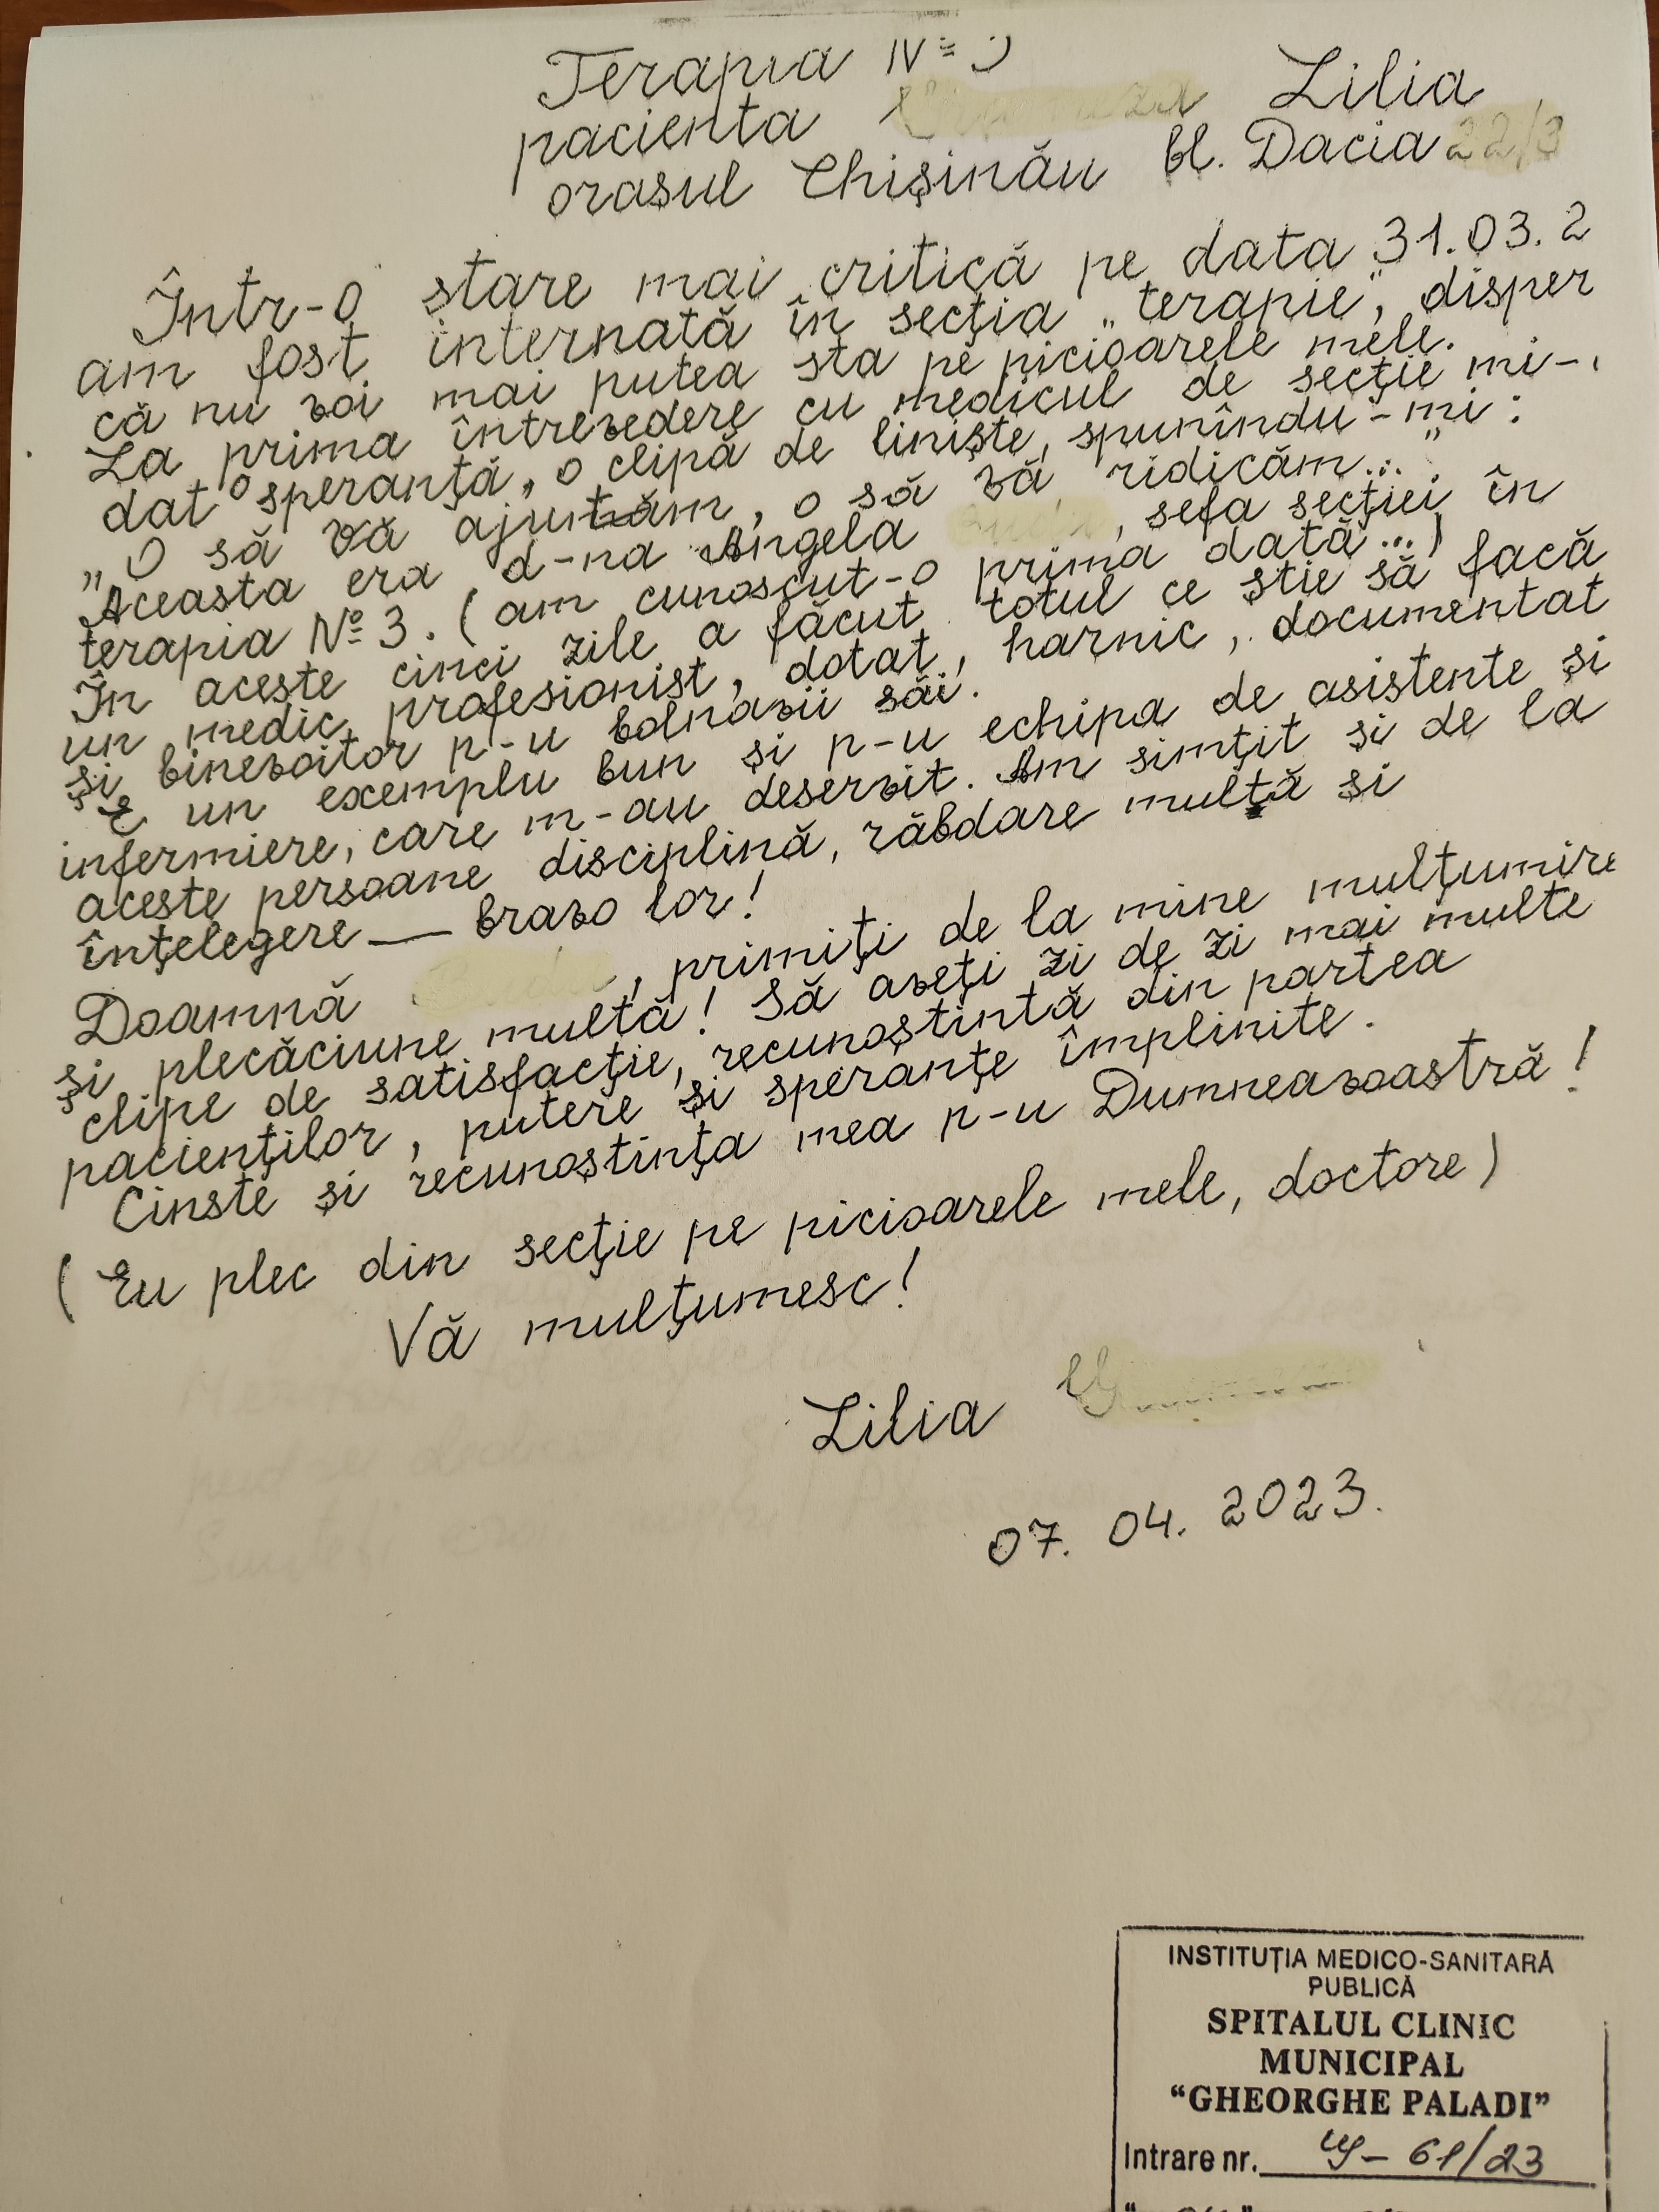 Terapia № 3
pacienta Lilia
orașul Chișinău bl. Dacia
Într-o stare mai critică pe data 31.03.2
am fost internată în secția „terapie”, disper
că nu voi mai putea sta pe picioarele mele.
La prima întrevedere cu medicul de secție mi-
dat o speranță, o clipă de liniște, spunîndu-mi:
„O să vă ajutăm, o să vă ridicăm...”
Aceasta era d-na Angela , șefa secției în
terapia № 3. (am cunoscut-o prima dată...)
În aceste cinci zile a făcut totul ce știe să facă
un medic profesionist, dotat, harnic, documentat
și binevoitor p-u bolnavii săi.
E un exemplu bun și p-u echipa de asistente și
infermiere, care m-au deservit. Am simțit și de la
aceste persoane disciplină, răbdare multă și
înțelegere — bravo lor!
Doamnă , primiți de la mine mulțumire
și plecăciune multă! Să aveți zi de zi mai multe
clipe de satisfacție, recunoștintă din partea
pacienților, putere și speranțe împlinite.
Cinste și recunoștința mea p-u Dumneavoastră!
(Eu plec din secție pe picioarele mele, doctore)
Vă mulțumesc!
Lilia
07. 04. 2023.
INSTITUȚIA MEDICO-SANITARĂ
PUBLICĂ
SPITALUL CLINIC
MUNICIPAL
“GHEORGHE PALADI”
Intrare nr. 61/23